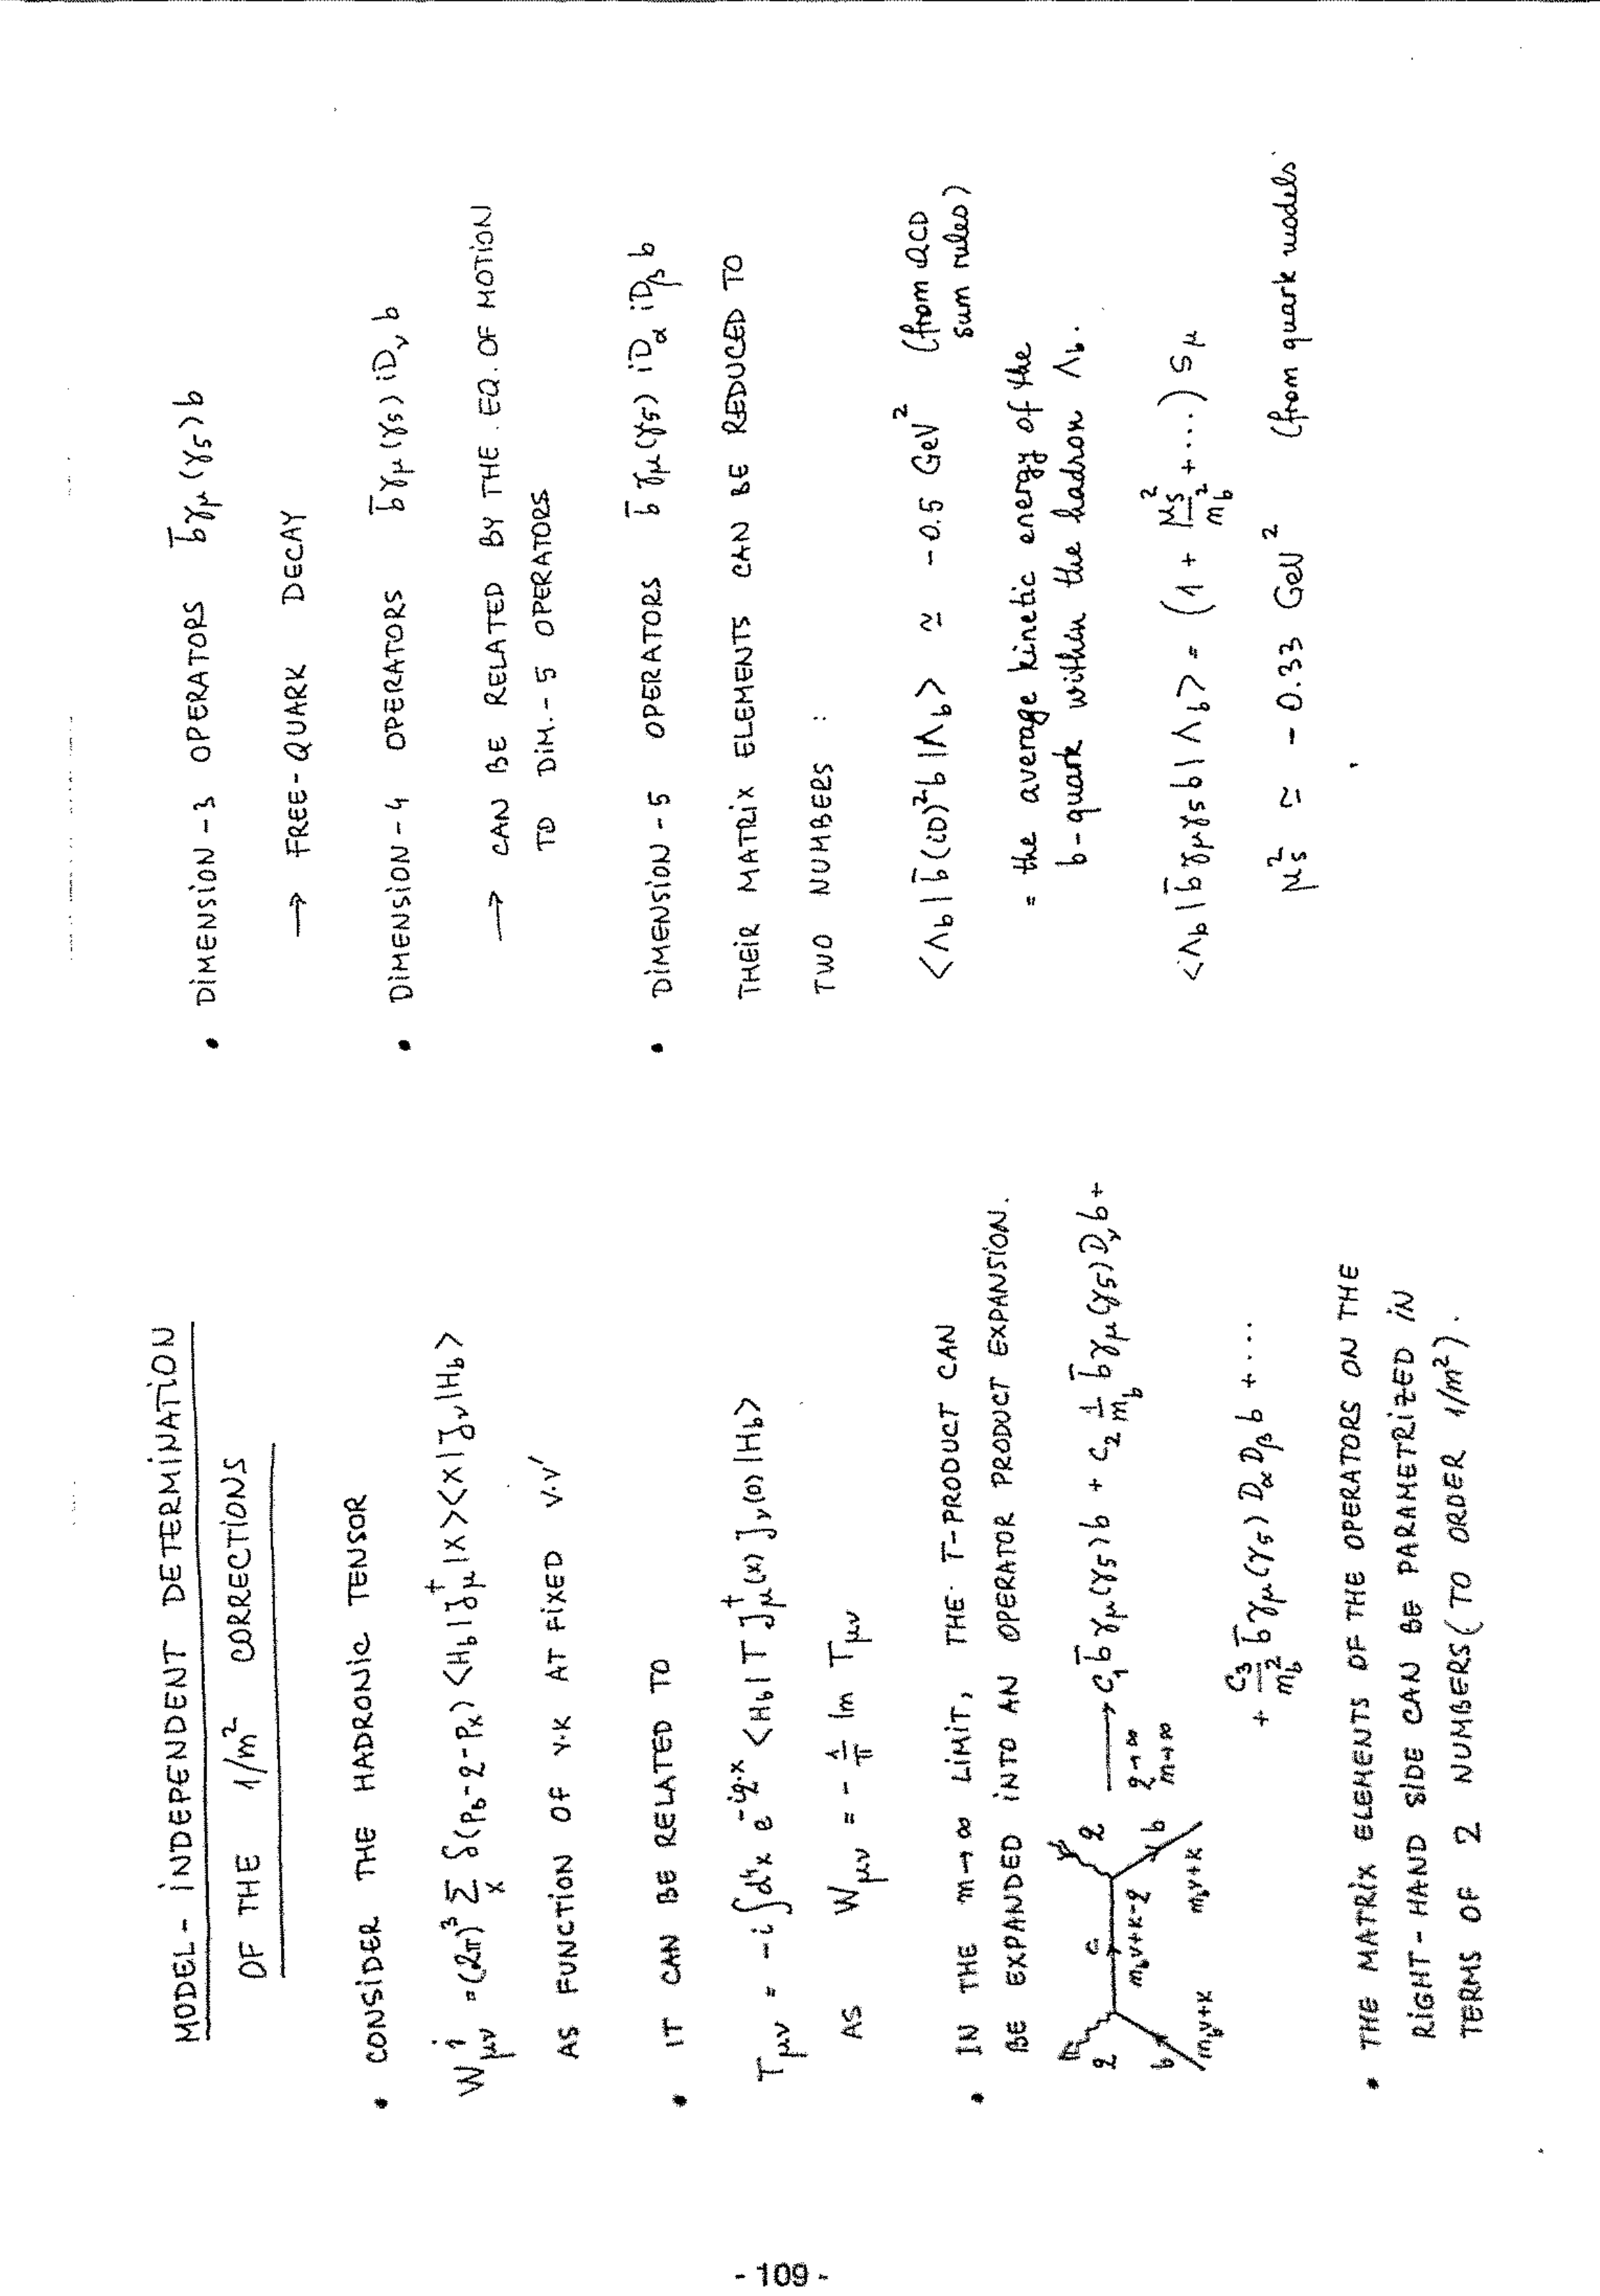 MODEL-INDEPENDENT DETERMINATION
OF THE 1/m² CORRECTIONS
• CONSIDER THE HADRONIC TENSOR
W^i_μν = (2π)³ Σ_X δ(p_b - q - p_X) <H_b|J†_μ|X><X|J_ν|H_b>
AS FUNCTION OF v.k AT FIXED v.v'
• IT CAN BE RELATED TO
T_μν = -i ∫d⁴x e^{-iq.x} <H_b|T J†_μ(x) J_ν(0)|H_b>
AS W_μν = - 1/π Im T_μν
• IN THE m→∞ LIMIT, THE T-PRODUCT CAN
BE EXPANDED INTO AN OPERATOR PRODUCT EXPANSION.
q c q
b m_b v+k-q b
m_b v+k m_b v+k
⟶ C_1 b̄ γ_μ(γ_5) b + C_2 1/m_b b̄ γ_μ(γ_5) D_ν b +
q→∞
m→∞
+ C_3/m_b² b̄ γ_μ(γ_5) D_α D_β b + ....
• THE MATRIX ELEMENTS OF THE OPERATORS ON THE
RIGHT-HAND SIDE CAN BE PARAMETRIZED IN
TERMS OF 2 NUMBERS (TO ORDER 1/m²).
• DIMENSION-3 OPERATORS b̄ γ_μ (γ_5) b
→ FREE-QUARK DECAY
• DIMENSION-4 OPERATORS b̄ γ_μ (γ_5) iD_ν b
→ CAN BE RELATED BY THE EQ. OF MOTION
TO DIM.-5 OPERATORS
• DIMENSION-5 OPERATORS b̄ γ_μ (γ_5) iD_α iD_β b
THEIR MATRIX ELEMENTS CAN BE REDUCED TO
TWO NUMBERS :
<Λ_b|b̄ (iD)² b|Λ_b> ≃ -0.5 GeV² (from QCD
sum rules)
= the average kinetic energy of the
b-quark within the hadron Λ_b.
<Λ_b|b̄ γ_μ γ_5 b|Λ_b> = (1 + μ_s²/m_b² + ....) s_μ
μ_s² ≃ -0.33 GeV² (from quark models
- 109 -